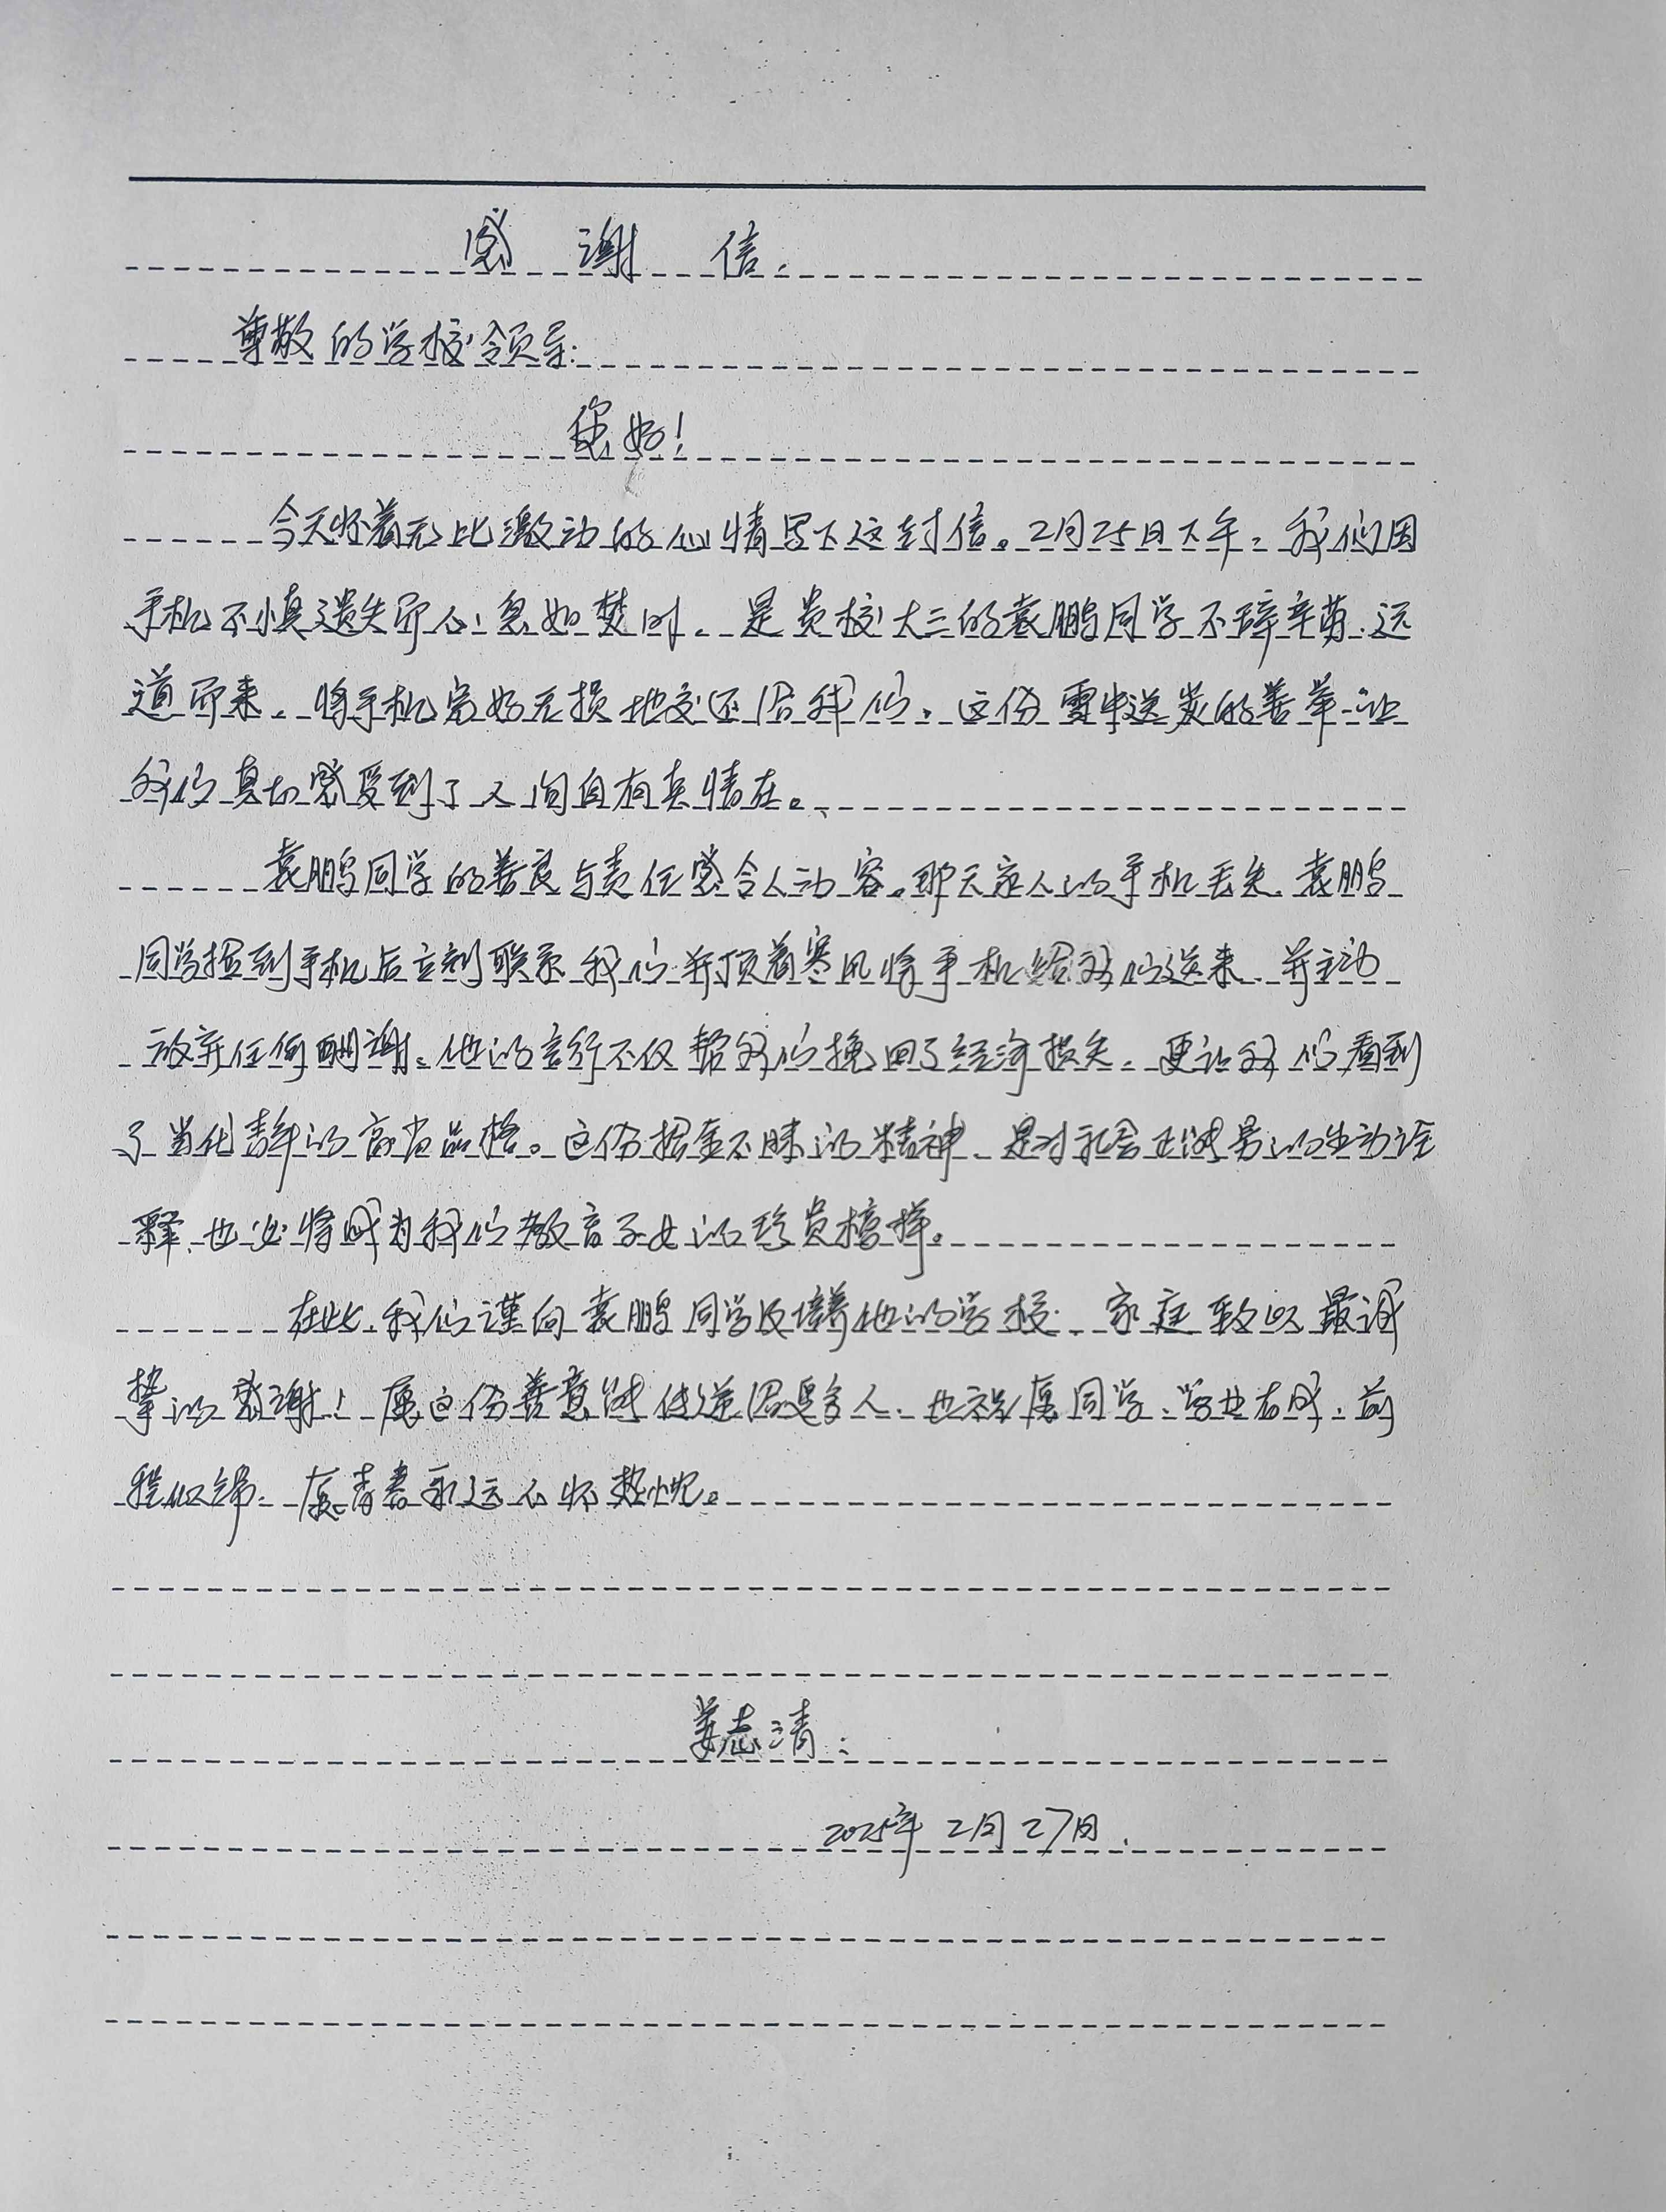 感谢信.
尊敬的学校领导:
您好!
今天怀着无比激动的心情写下这封信。2月25日下午,我们因
手机不慎遗失而心急如焚时,是贵校大三的袁鹏同学不辞辛劳,远
道而来,将手机完好无损地交还给我们,这份雪中送炭的善举让
我们真切感受到了人间自有真情在。
袁鹏同学的善良与责任感令人动容。那天家人的手机丢失,袁鹏
同学捡到手机后立刻联系我们并顶着寒风将手机给我们送来,并主动
放弃任何酬谢。他的言行不仅帮我们挽回了经济损失,更让我们看到
了当代青年的高尚品格。这份拾金不昧的精神,是对社会正能量的生动诠
释,也必将成为我们教育子女的珍贵榜样。
在此,我们谨向袁鹏同学及培养他的学校、家庭致以最诚
挚的感谢!愿这份善意能传递给更多人,也祝愿同学,学业有成,前
程似锦,愿青春永远心怀热忱。
姜志清:
2025年2月27日.